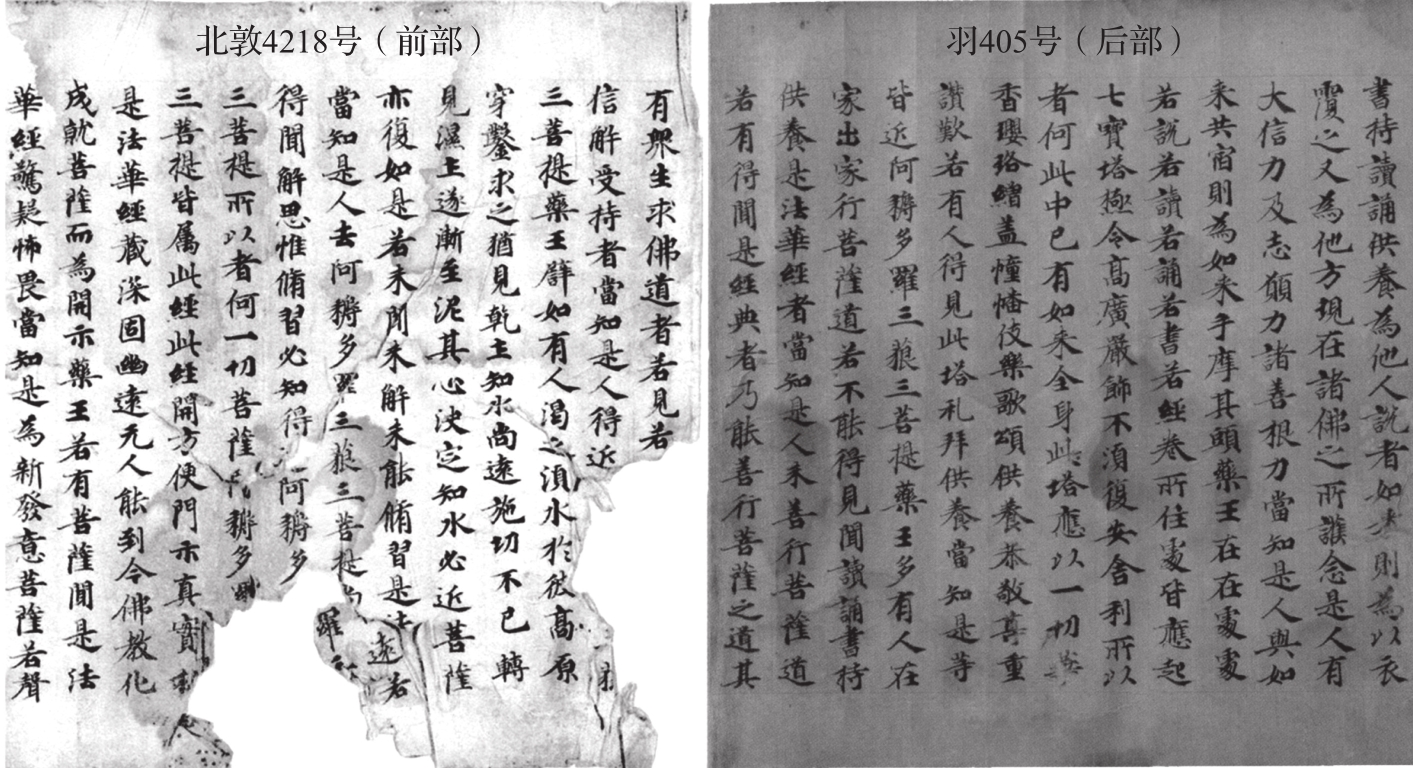 北敦4218号（前部）
羽405号（后部）
書持讀誦供養為他人說者如来則為以衣
覆之又為他方現在諸佛之所護念是人有
大信力及志願力諸善根力當知是人與如
来共宿則為如来手摩其頭藥王在在處處
若說若讀若誦若書若經卷所住處皆應起
七寶塔極令高廣嚴飾不須復安舍利所以
者何此中已有如来全身此塔應以一切華
香瓔珞繒蓋幢幡伎樂歌頌供養恭敬尊重
讃歎若有人得見此塔礼拜供養當知是等
皆近阿耨多羅三藐三菩提藥王多有人在
家出家行菩薩道若不能得見聞讀誦書持
供養是法華經者當知是人未善行菩薩道
若有得聞是經典者乃能善行菩薩之道其
有眾生求佛道者若見若
信解受持者當知是人得近
三菩提藥王譬如有人渴乏須水於彼高原
穿鑿求之猶見乾土知水尚遠施切不已轉
見濕土遂漸至泥其心決定知水必近菩薩
亦復如是若未聞未解未能脩習是法
當知是人去阿耨多羅三藐三菩提尚遠若
得聞解思惟脩習必知得阿耨多羅
三菩提所以者何一切菩薩阿耨多羅
三菩提皆属此經此經開方便門示真實
是法華經藏深固幽遠无人能到今佛教化
成就菩薩而為開示藥王若有菩薩聞是法
華經驚疑怖畏當知是為新發意菩薩若聲